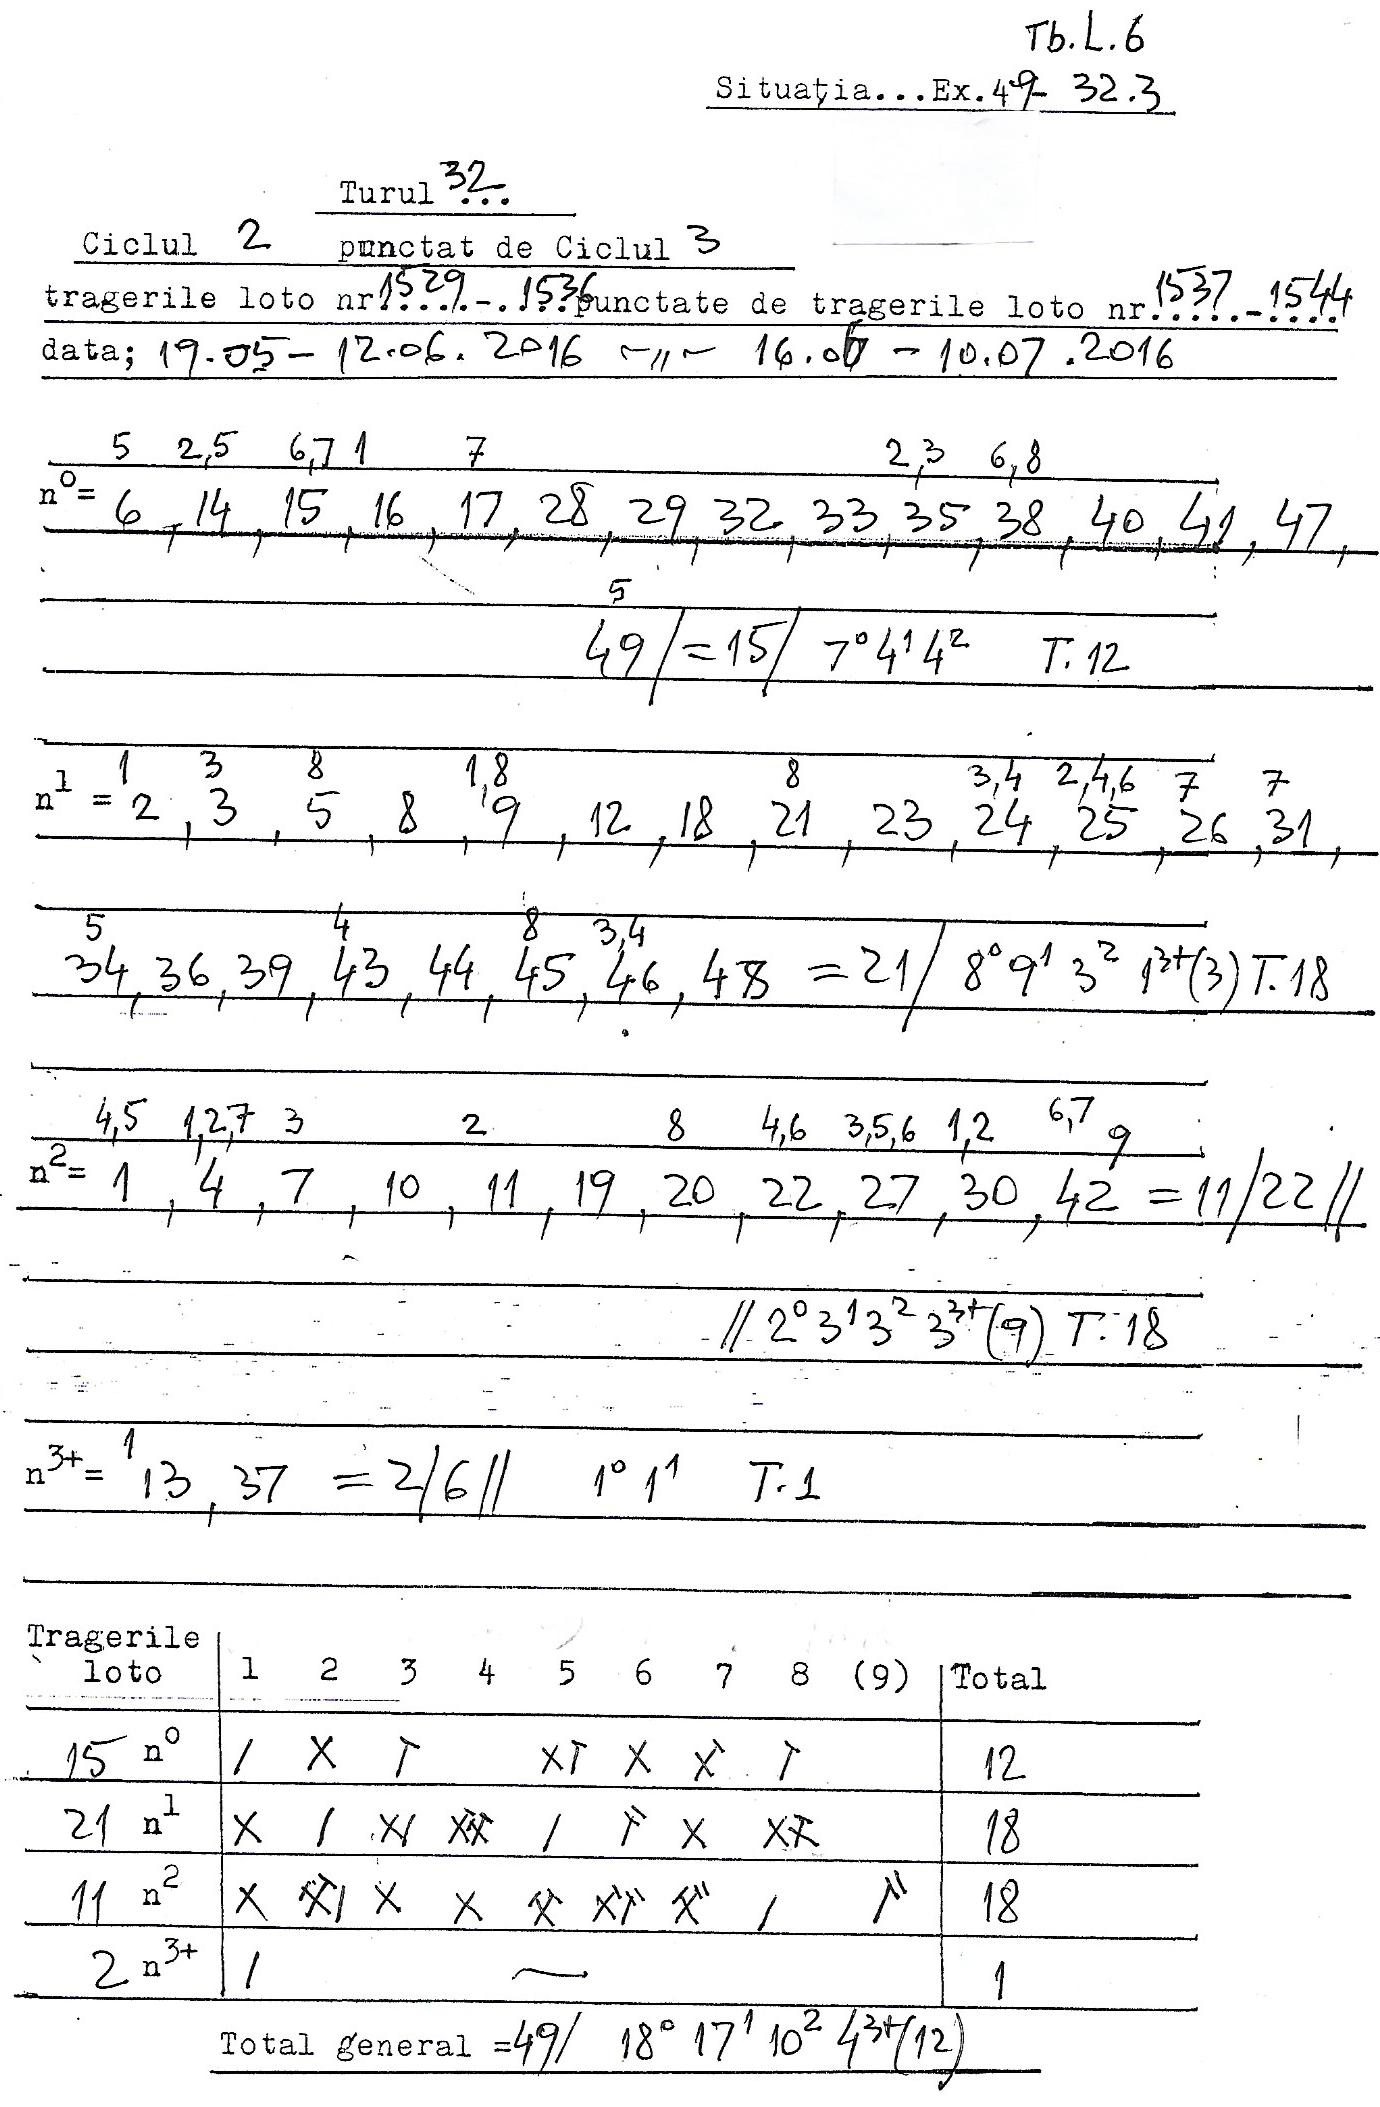 Tb.L.6
Situația...Ex.49- 32.3
Turul 32...
Ciclul 2 punctat de Ciclul 3
tragerile loto nr.1529.-.1536 punctate de tragerile loto nr.1537.-1544
data; 19.05- 12.06.2016 ~//~ 16.06 - 10.07.2016
5 2,5 6,7 1 7 2,3 6,8
n⁰= 6, 14, 15, 16, 17, 28, 29, 32, 33, 35, 38, 40, 41, 47,
5
49/=15/ 7⁰4¹4² T.12
1 3 8 1,8 8 3,4 2,4,6 7 7
n¹ = 2, 3, 5, 8, 9, 12, 18, 21, 23, 24, 25, 26, 31,
5 4 8 3,4
34, 36, 39, 43, 44, 45, 46, 48 = 21/ 8⁰9¹ 3² 1³⁺(3) T.18
4,5 1,2,7 3 2 8 4,6 3,5,6 1,2 6,7 9
n²= 1, 4, 7, 10, 11, 19, 20, 22, 27, 30, 42 = 11/22//
// 2⁰3¹3² 3³⁺(9) T.18
1
n³⁺= 13, 37 = 2/6// 1⁰ 1¹ T.1
Tragerile
loto 1 2 3 4 5 6 7 8 (9) Total
15 n⁰ 12
21 n¹ 18
11 n² 18
2 n³⁺ 1
Total general =49/ 18⁰ 17¹ 10² 4³⁺(12)